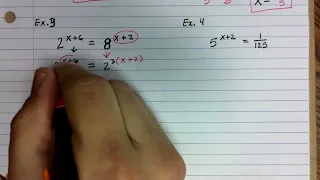 x = 3
Ex. 3
2^{x+6} = 8^{x+2}
= 2^{3(x+2)}
Ex. 4
5^{x+2} = 1/125